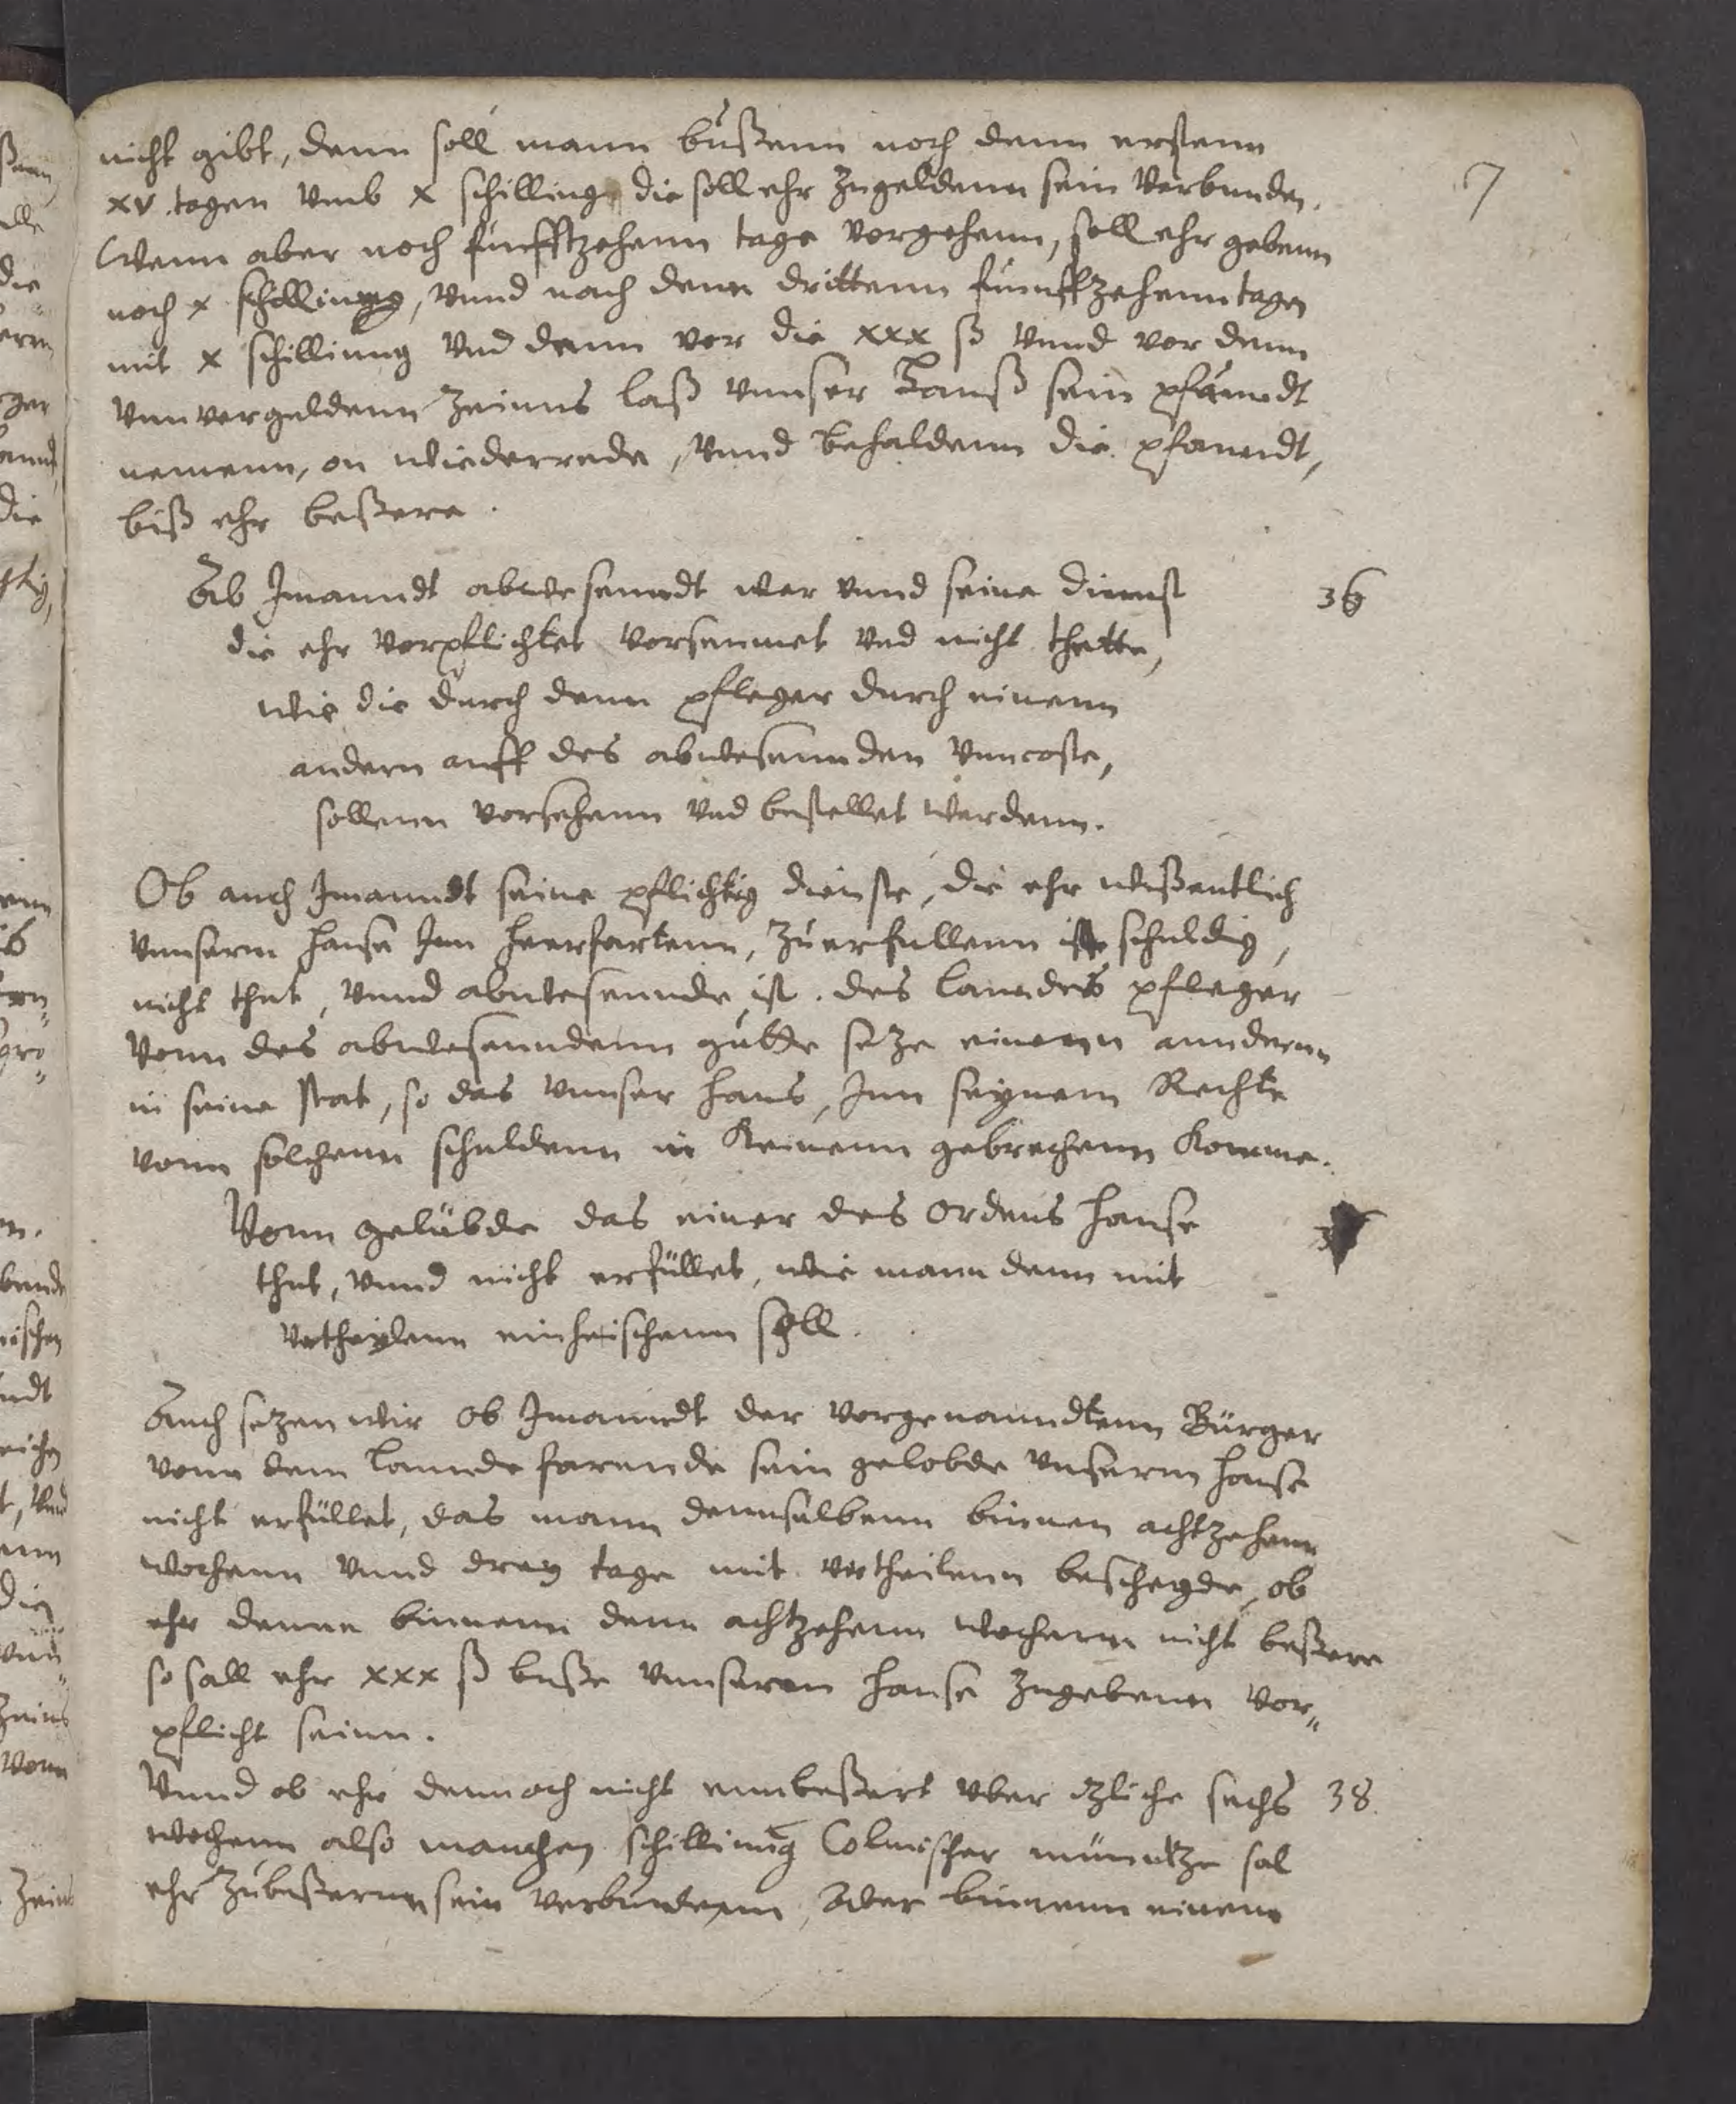 7
nicht gibt, denn soll mann bußenn noch denn erstenn
xv. tagen vmb x schillinge die soll ehr zugeldenn sein verbunden.
Wenn aber noch funfftzehenn tage vorgehenn, soll ehr gebenn
noch x schillinng, vnnd nach denn drittenn funffzehenn tagen
mit x schillinng vnd denn vor die xxx ß vnnd vor denn
vnnvorgeldenn Zeinns laß vnnser Hauß sein pfanndt
nemenn, on wiederrede, vnnd behaldenn die pfanndt,
biß ehr beßere.
Ab Jmanndt abwesenndt wer vnnd seine dienst 36
die ehr vorpflichtet vorseumet vnd nicht thette,
wie die durch denn pfleger durch einenn
andern auff des abwesennden vnncoste,
sollenn vorsehenn vnd bestellet werdenn.
Ob auch Jmanndt seine pflichtig dienste, die ehr wißentlich
vnnserm hause Jnn heerfartenn, zuerfullenn ist schuldig,
nicht thut, vnnd abwesennde ist. des lanndes pfleger
vonn des abwesenndenn gutte setze einenn anndernn
in seine stat, so das vnnser haus, Jnn seynem Rechte
vonn solchenn schuldenn in keinenn gebrechenn komme.
Vonn gelübde das einer des ordens hause
thut, vnnd nicht erfüllet, wie mann denn mit
vrtheylenn einheischenn soll.
Auch setzen wir ob Jmanndt der vorgenanndtenn Bürger
vonn dem lannde farende sein gelobde vnserm hause
nicht erfüllet, das mann dennselbenn binnen achtzehenn
wochenn vnnd drey tage mit vrtheilenn bescheyde, ob
ehr denne binnenn denn achtzehenn wochenn nicht beßere
so sall ehr xxx ß buße vnnserem hause zugebenn vor„
pflicht seinn.
Vnnd ob ehr dennoch nicht ennbeßert vber itzliche sechs 38.
wochenn also manchen schillinng Colmischer münntze sal
ehr zubeßernn sein verbundenn, Oder binnenn einem